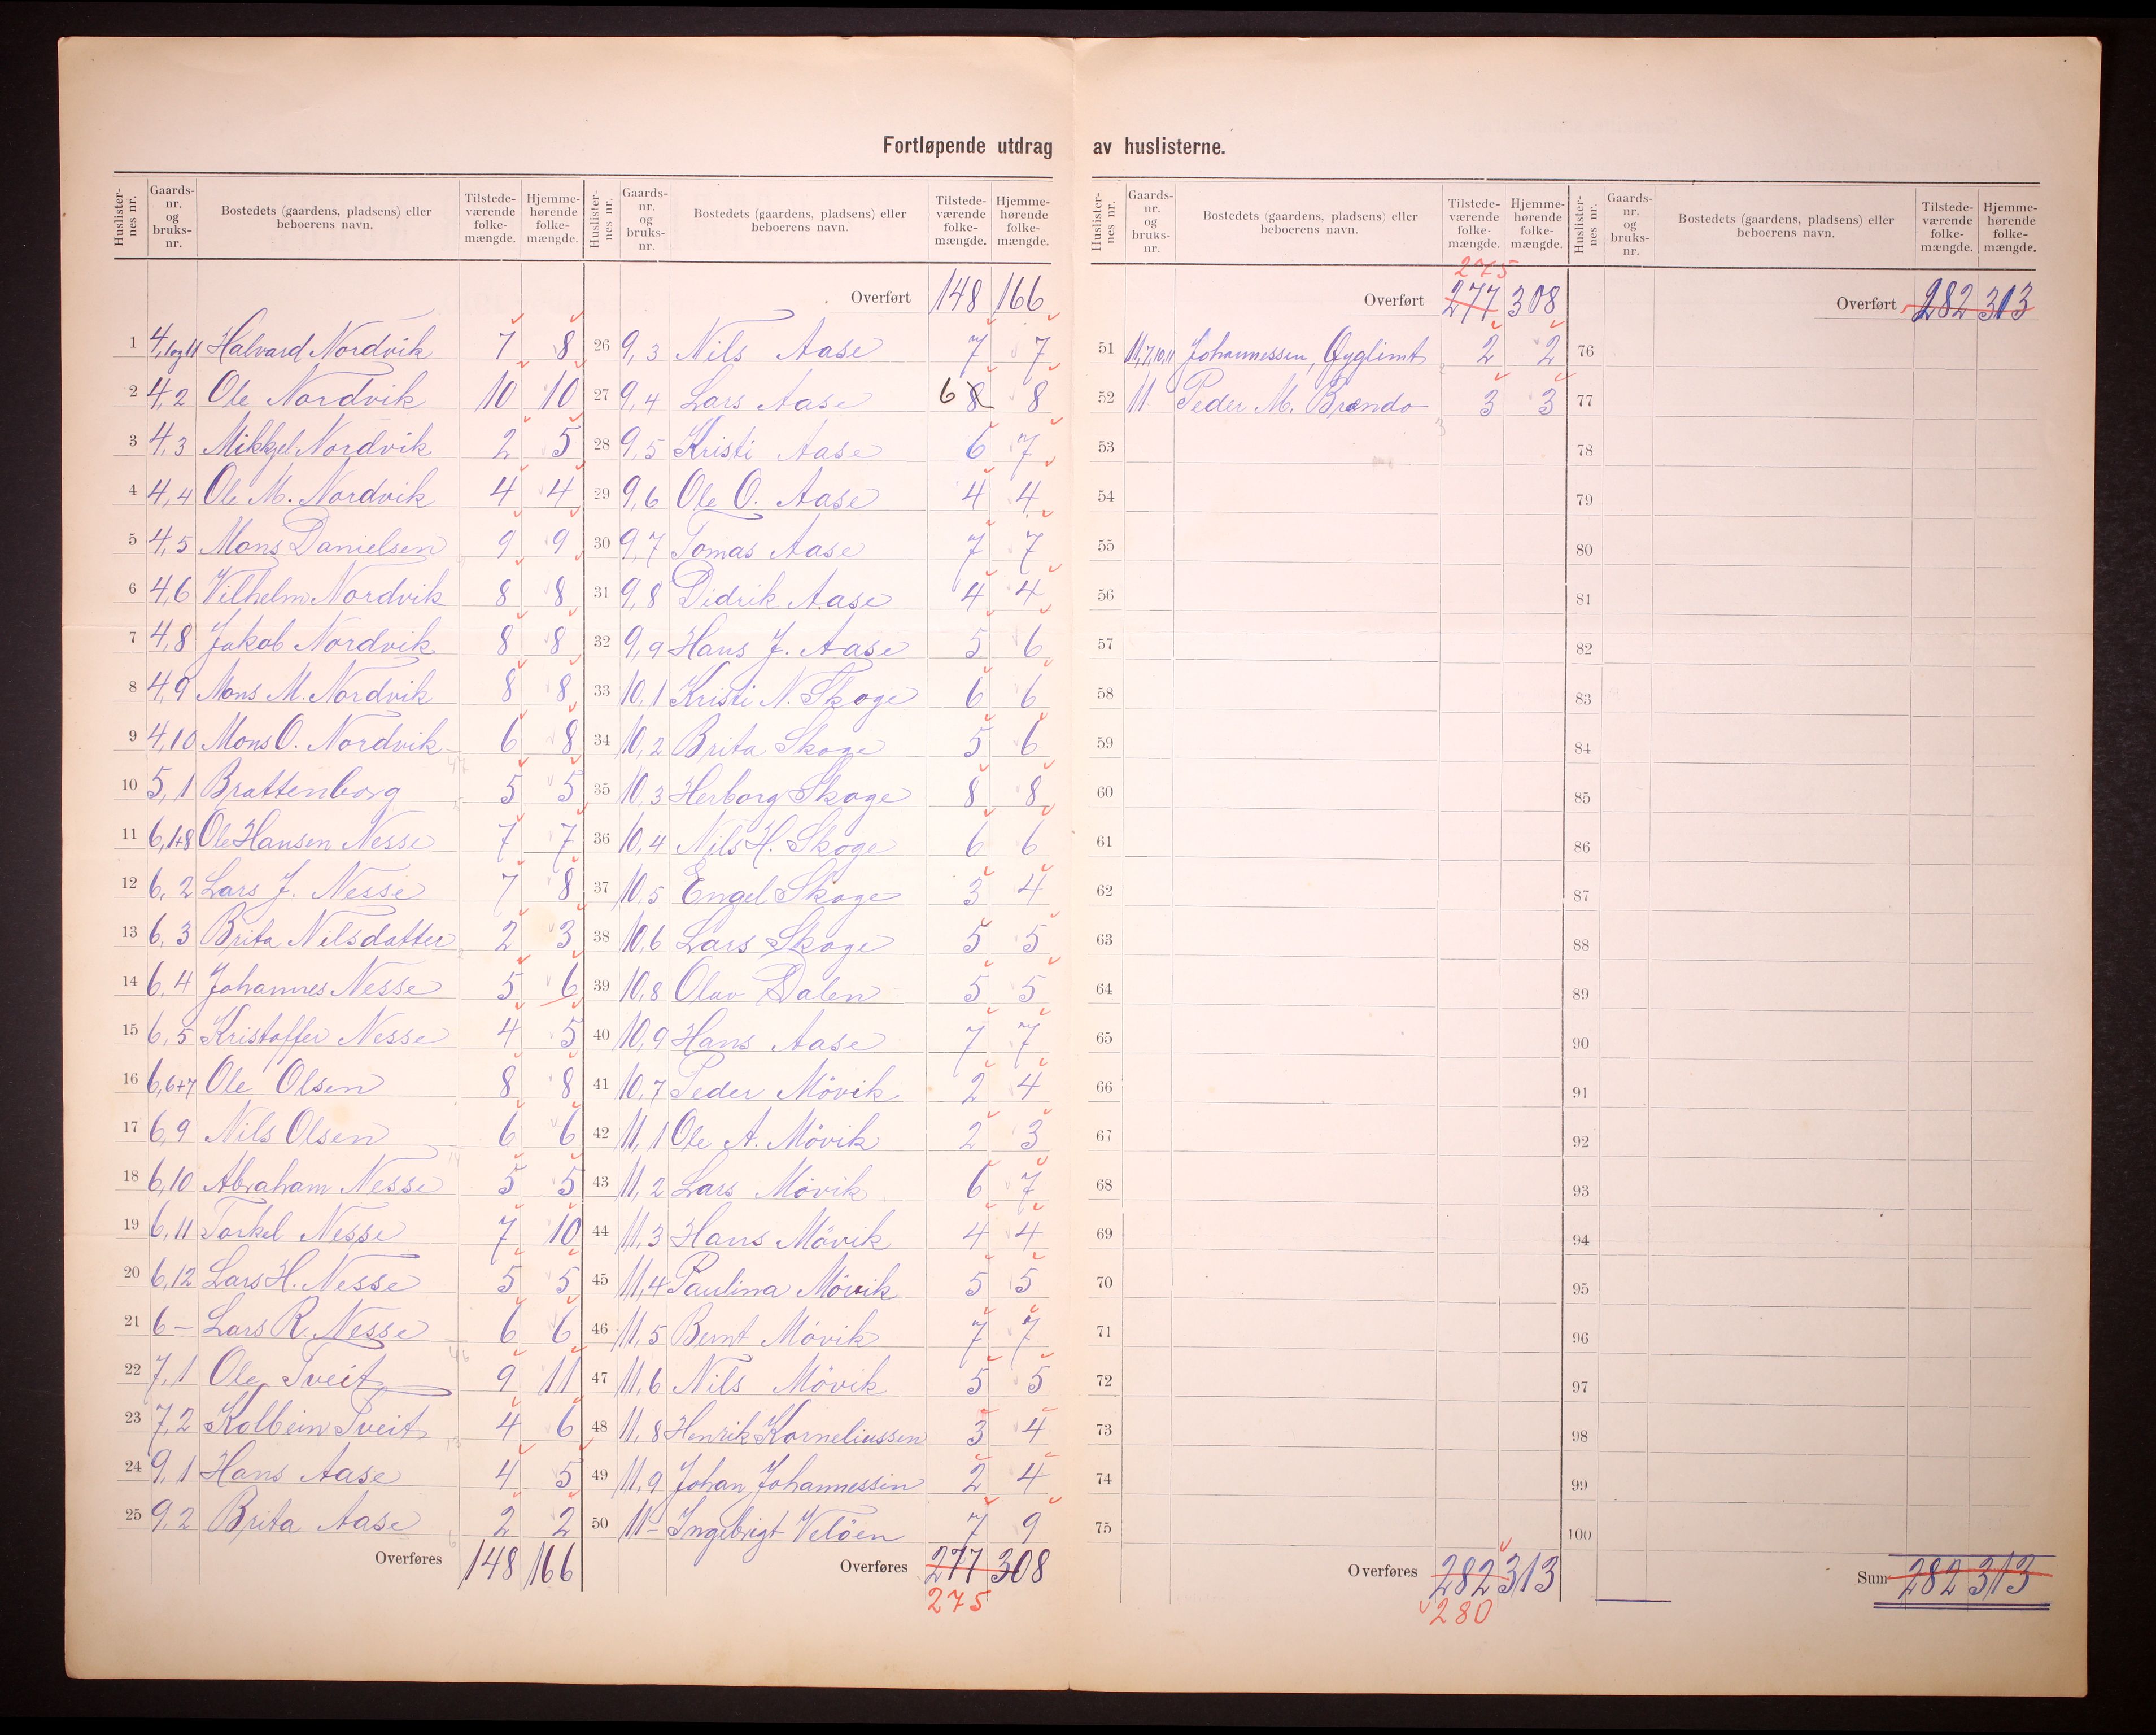 Fortløpende utdrag av huslisterne.
Huslister-nes nr. Gaards-nr. og bruks-nr. Bostedets (gaardens, pladsens) eller beboerens navn. Tilstede-værende folke-mængde. Hjemme-hørende folke-mængde.
1 4,1og11 Halvard Nordvik 7 8
2 4,2 Ole Nordvik 10 10
3 4,3 Mikkjel Nordvik 2 5
4 4,4 Ole M. Nordvik 4 4
5 4,5 Mons Danielsen 9 9
6 4,6 Vilhelm Nordvik 8 8
7 4,8 Jakob Nordvik 8 8
8 4,9 Mons M. Nordvik 8 8
9 4,10 Mons O. Nordvik 6 8
10 5,1 Brattenborg 5 5
11 6,1+8 Ole Hansen Nesse 7 7
12 6,2 Lars J. Nesse 7 8
13 6,3 Brita Nilsdatter 2 3
14 6,4 Johannes Nesse 5 6
15 6,5 Kristoffer Nesse 4 5
16 6,6+7 Ole Olsen 8 8
17 6,9 Nils Olsen 6 6
18 6,10 Abraham Nesse 5 5
19 6,11 Torkel Nesse 7 10
20 6,12 Lars H. Nesse 5 5
21 6– Lars R. Nesse 6 6
22 7,1 Ole Tveit 9 11
23 7,2 Kolbein Tveit 4 6
24 9,1 Hans Aase 4 5
25 9,2 Brita Aase 2 2
Overføres 148 166
Huslister-nes nr. Gaards-nr. og bruks-nr. Bostedets (gaardens, pladsens) eller beboerens navn. Tilstede-værende folke-mængde. Hjemme-hørende folke-mængde.
Overført 148 166
26 9,3 Nils Aase 7 7
27 9,4 Lars Aase 6 8 8
28 9,5 Kristi Aase 6 7
29 9,6 Ole O. Aase 4 4
30 9,7 Tomas Aase 7 7
31 9,8 Didrik Aase 4 4
32 9,9 Hans J. Aase 5 6
33 10,1 Kristi N. Skoge 6 6
34 10,2 Brita Skoge 5 6
35 10,3 Herborg Skoge 8 8
36 10,4 Nils H. Skoge 6 6
37 10,5 Engel Skoge 3 4
38 10,6 Lars Skoge 5 5
39 10,8 Olav Dalen 5 5
40 10,9 Hans Aase 7 7
41 10,7 Peder Mövik 2 4
42 11,1 Ole A. Mövik 2 3
43 11,2 Lars Mövik 6 7
44 11,3 Hans Mövik 4 4
45 11,4 Paulina Mövik 5 5
46 11,5 Bernt Mövik 7 7
47 11,6 Nils Mövik 5 5
48 11,8 Henrik Korneliussen 3 4
49 11,9 Johan Johannessen 2 4
50 11– Ingebrigt Velöen 7 9
Overføres 277 308
275
Huslister-nes nr. Gaards-nr. og bruks-nr. Bostedets (gaardens, pladsens) eller beboerens navn. Tilstede-værende folke-mængde. Hjemme-hørende folke-mængde.
275
Overført 277 308
51 11,7,10,11 Johannessen, Øyglimt 2 2
52 11 Peder M. Brændo 3 3
53
54
55
56
57
58
59
60
61
62
63
64
65
66
67
68
69
70
71
72
73
74
75
Overføres 282 313
280
Huslister-nes nr. Gaards-nr. og bruks-nr. Bostedets (gaardens, pladsens) eller beboerens navn. Tilstede-værende folke-mængde. Hjemme-hørende folke-mængde.
Overført 282 313
76
77
78
79
80
81
82
83
84
85
86
87
88
89
90
91
92
93
94
95
96
97
98
99
100
Sum 282 313